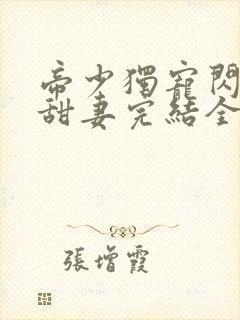 帝少獨寵閃
甜妻完結全
張增霞